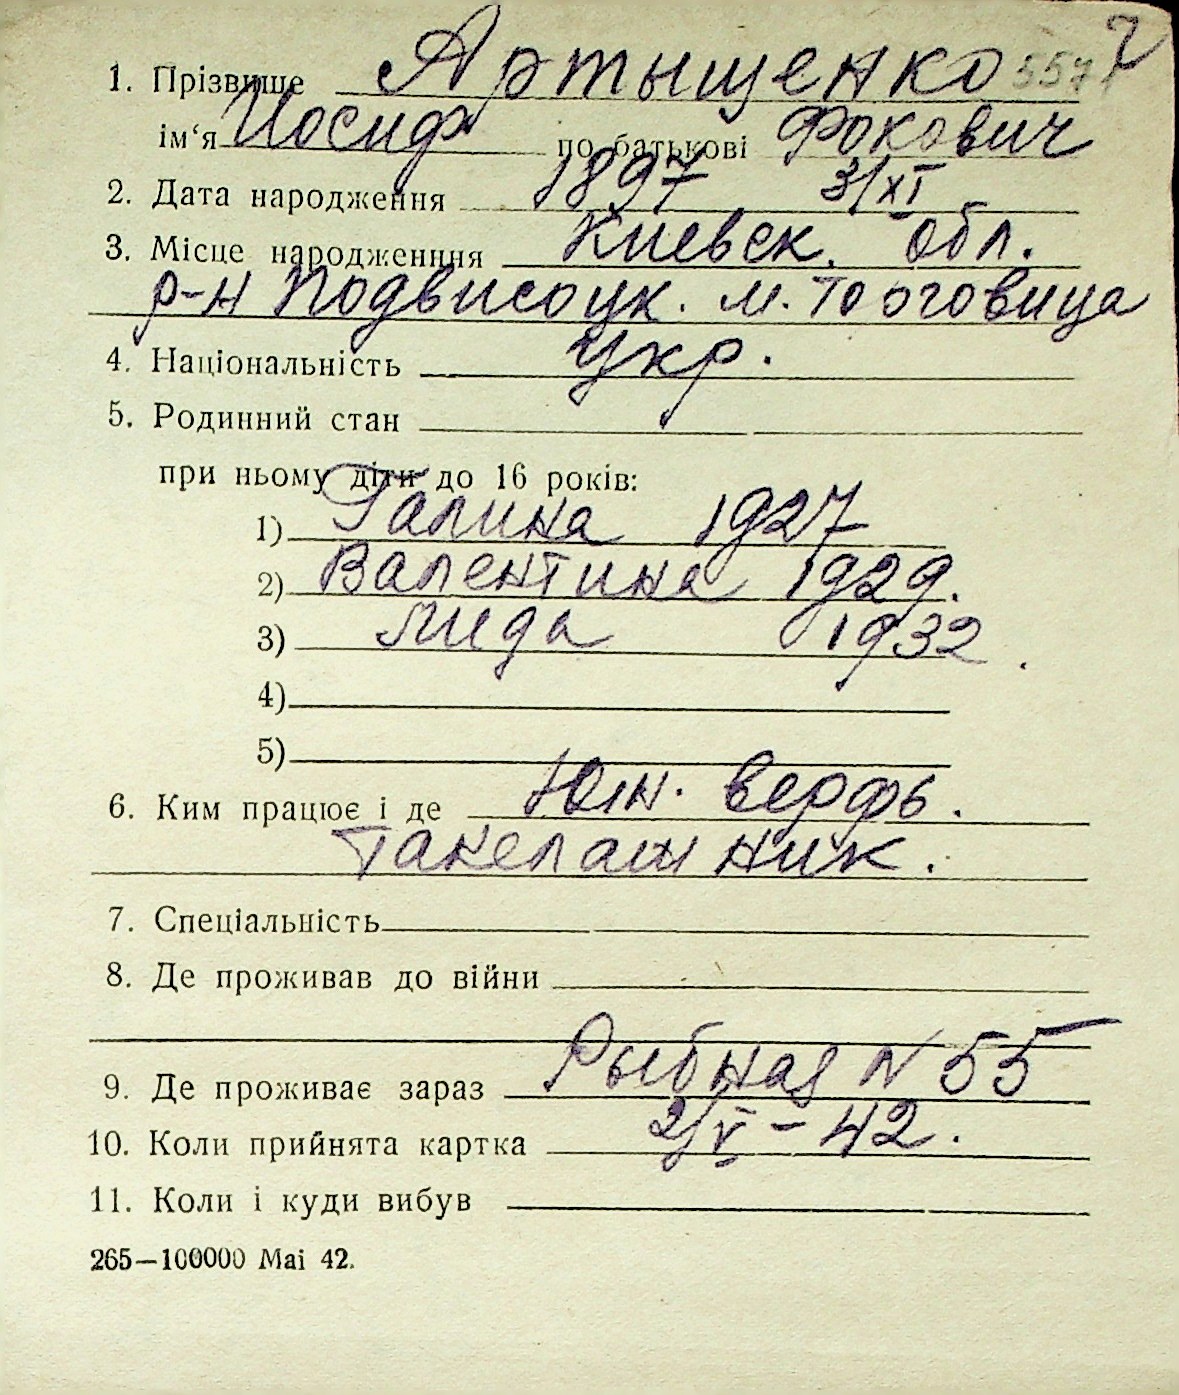 1. Прізвище Артыщенко 557 2
ім‘я Иосиф по батькові Фокович
2. Дата народження 1897 3/XI
3. Місце народженння Киевск. обл.
р-н Подвисоцк. м. Торговица
4. Національність Укр.
5. Родинний стан
при ньому діти до 16 років:
1) Галина 1927
2) Валентина 1929.
3) Лида 1932.
4)
5)
6. Ким працює і де Юж. верфь.
Такелашник.
7. Спеціальність
8. Де проживав до війни
9. Де проживає зараз Рыбная N 55
10. Коли прийнята картка 2/V – 42.
11. Коли і куди вибув
265—100000 Mai 42.